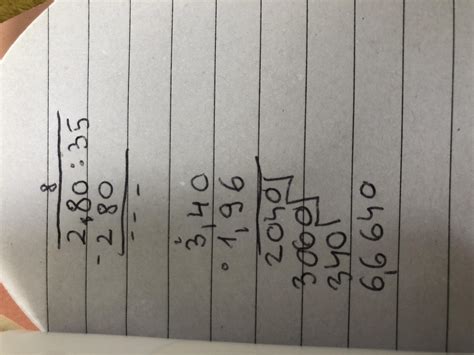 8
2,80:35
-280
---
3,40
·1,96
2040
3060
340
6,6640